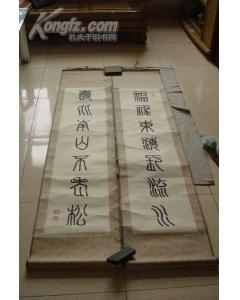 Kongfz.com
孔夫子旧书网
福緣東海長流水
壽比南山不老松